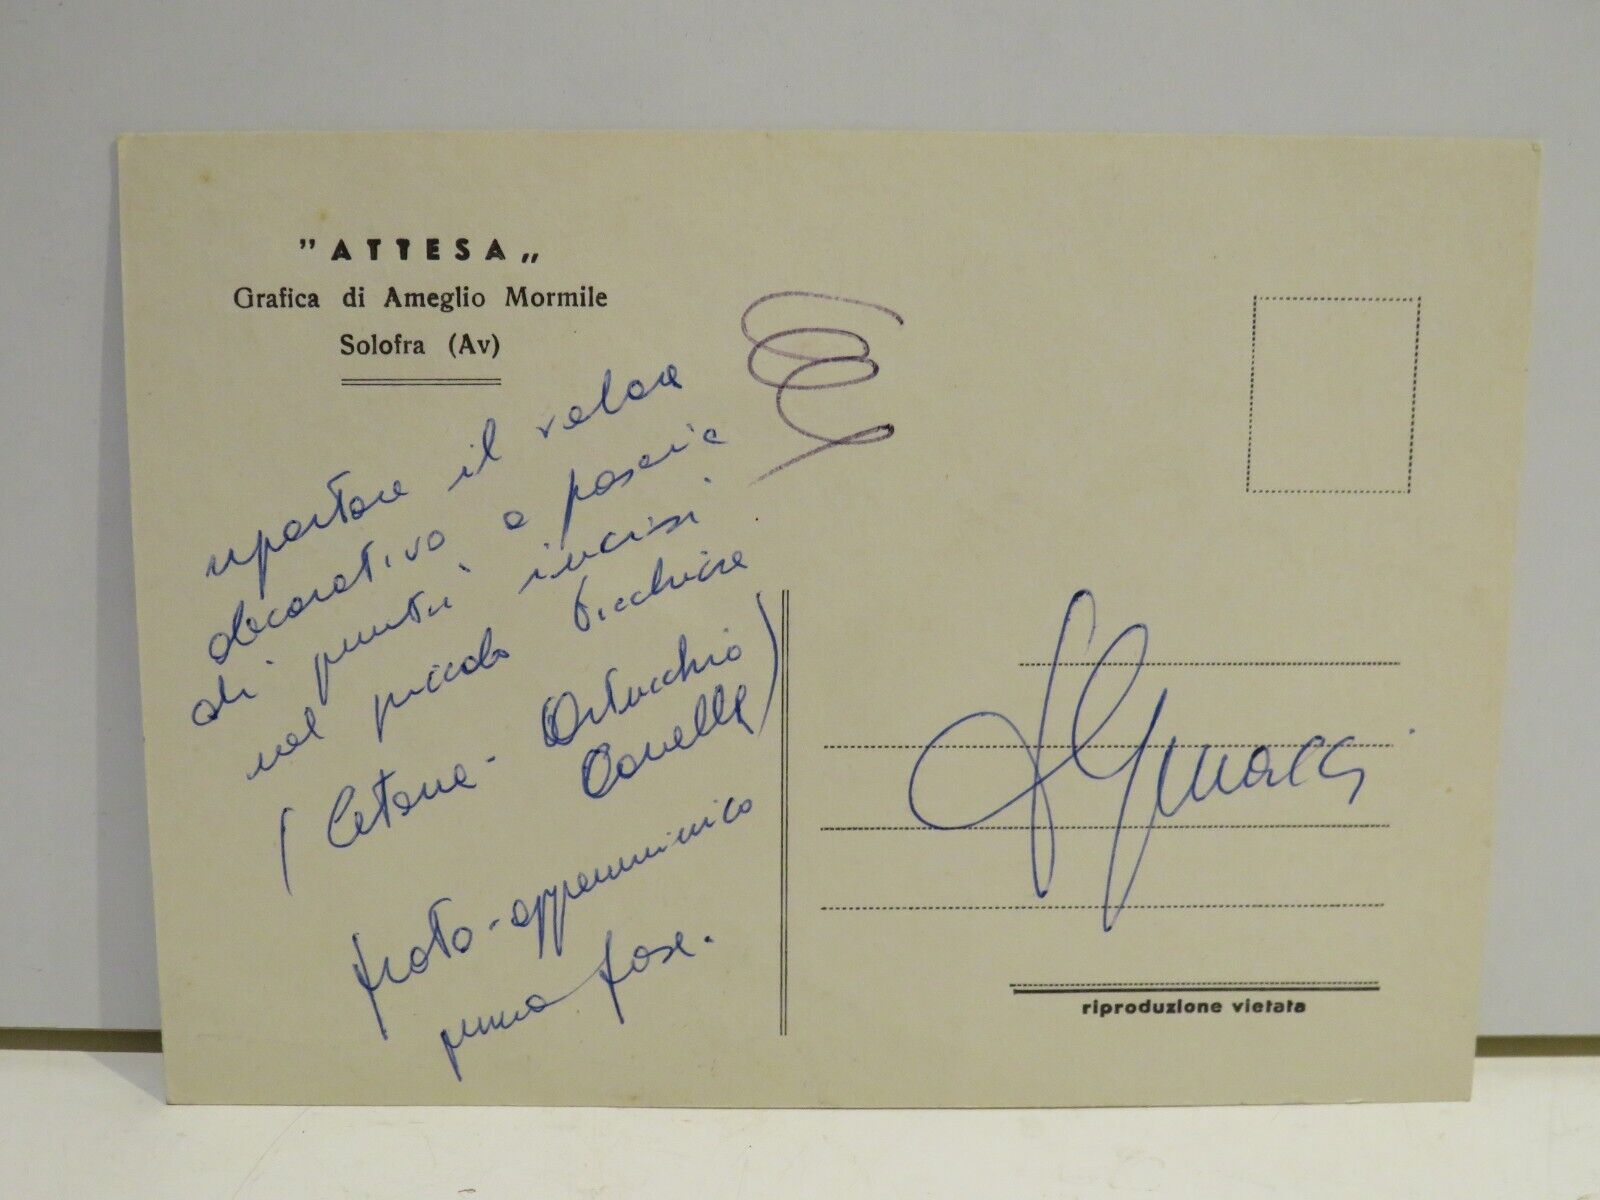 "ATTESA„
Grafica di Ameglio Mormile
Solofra (Av)
riportare il valore
decorativo a fascia
di punti incisi
nel piccolo bicchiere
( Catena - Ortucchio
Conelle )
proto-appenninico
prima fase.
riproduzione vietata